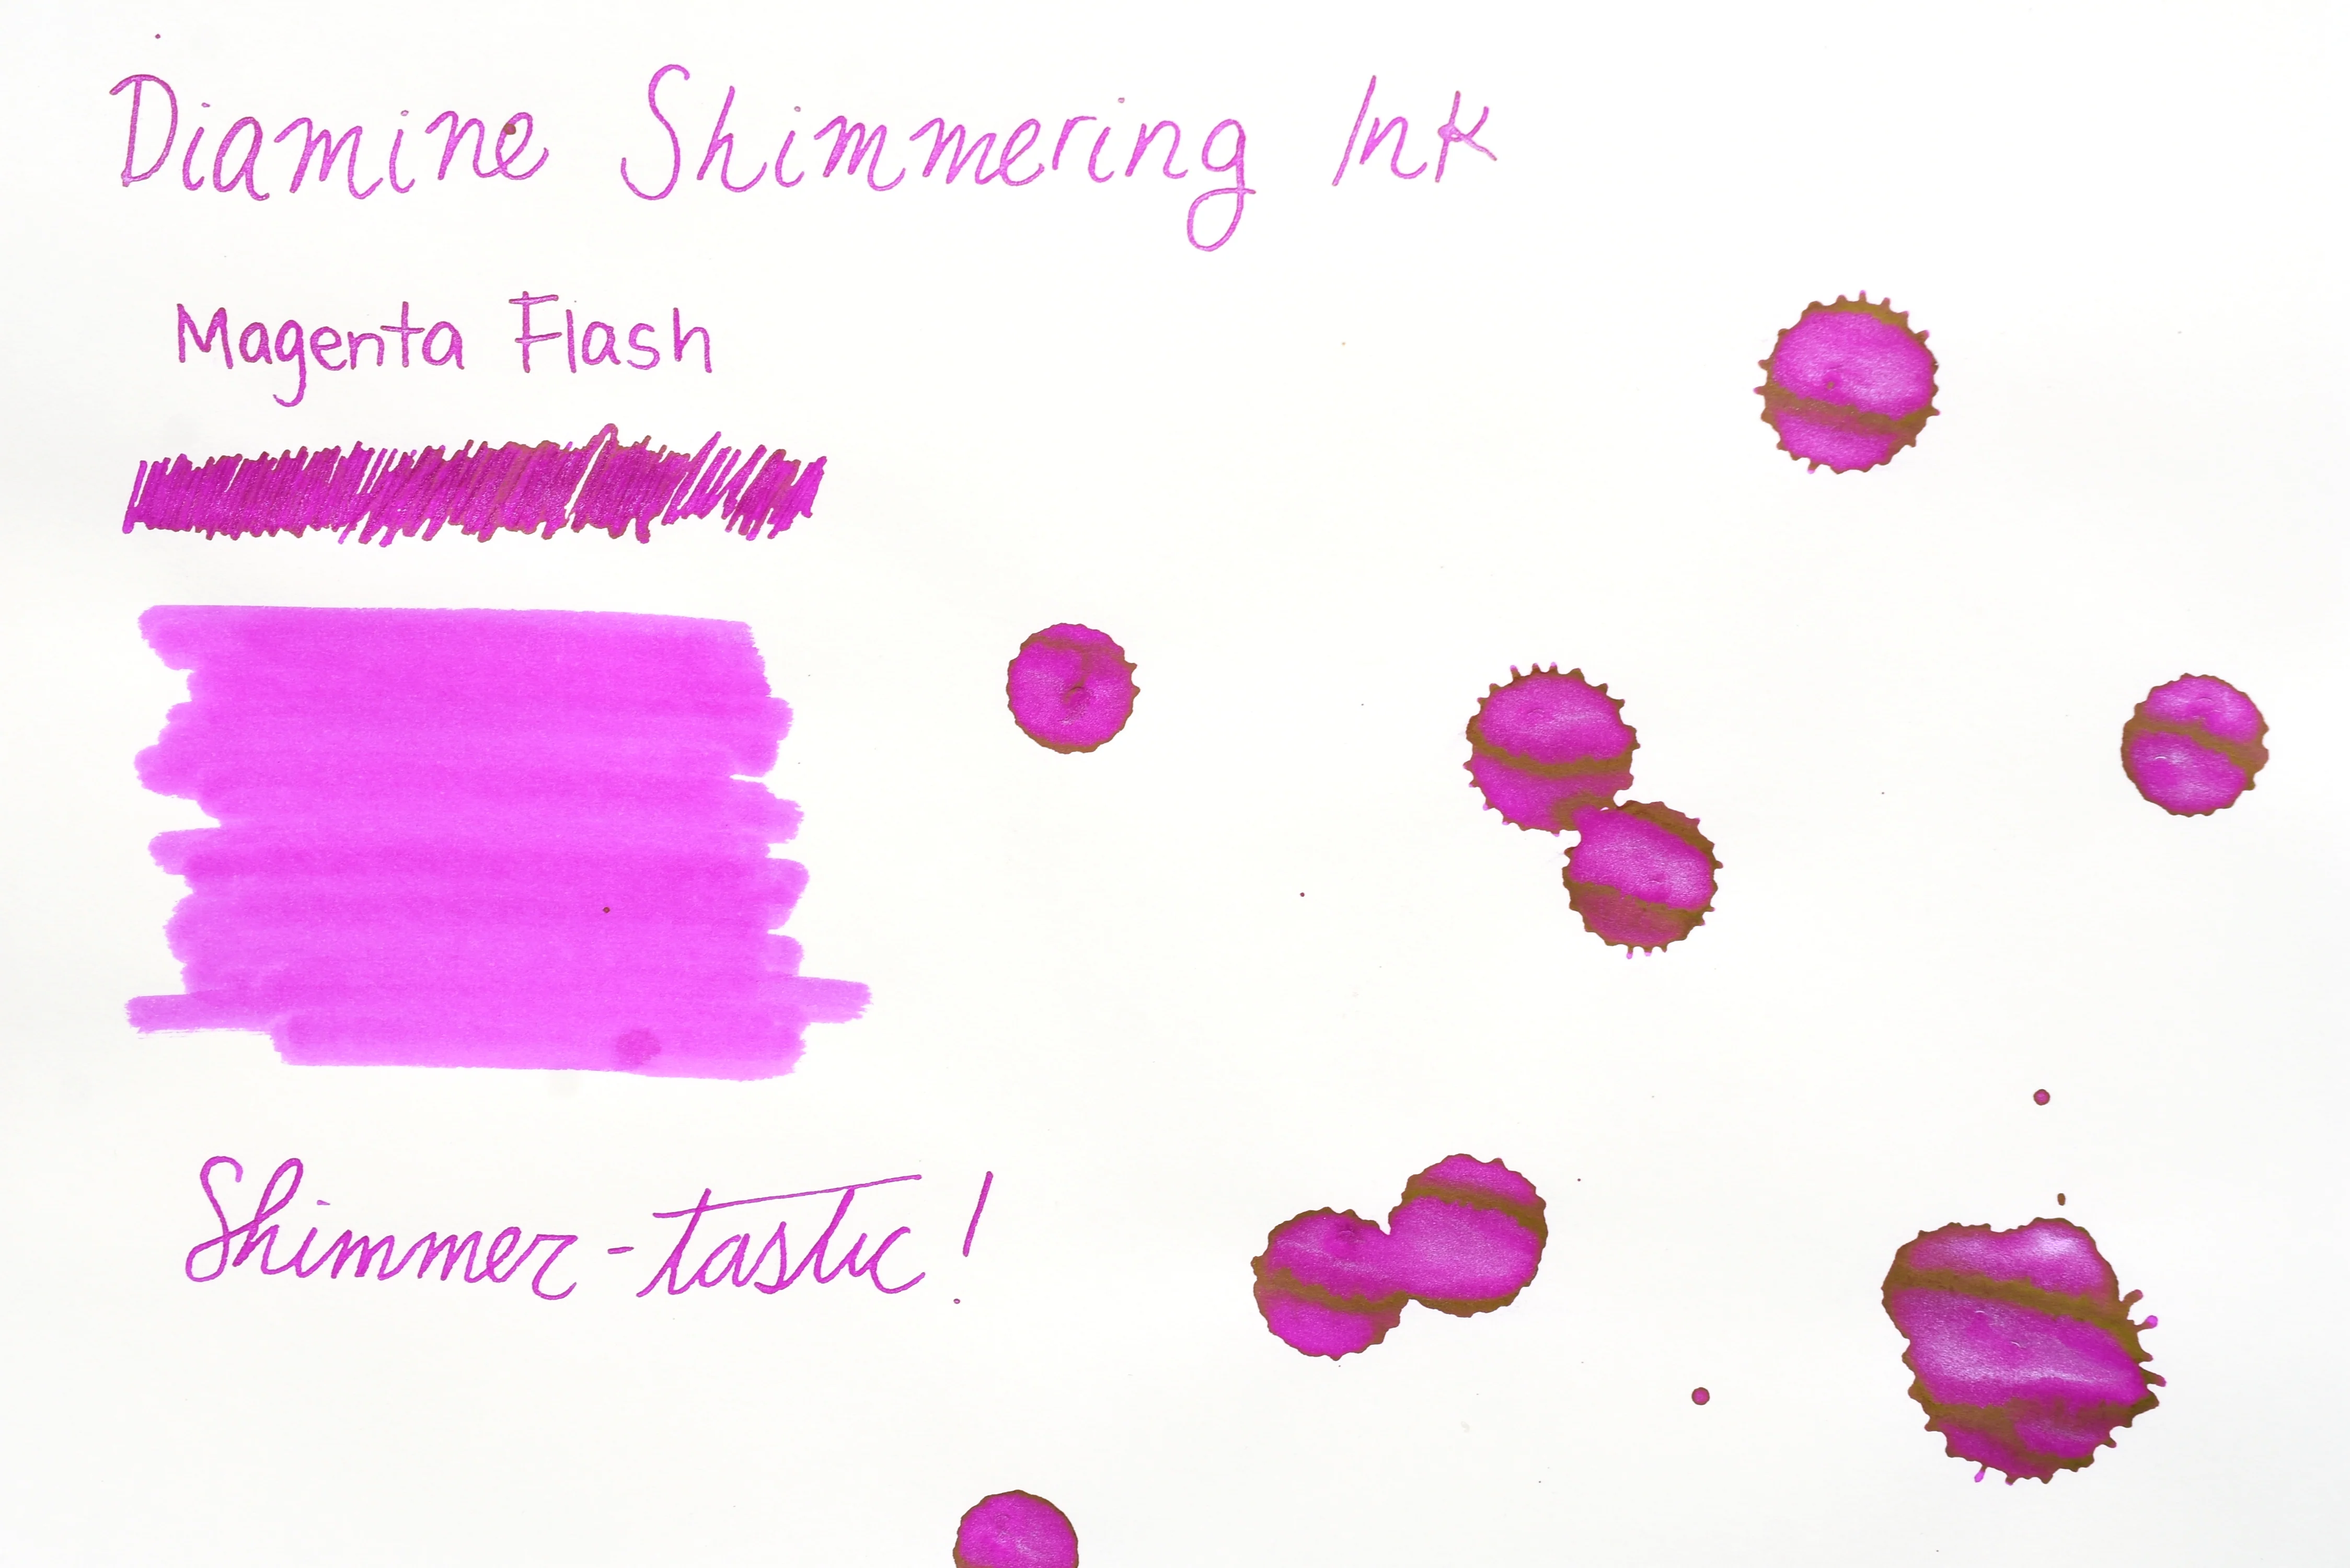 Diamine Shimmering Ink
Magenta Flash
Shimmer-tastic!